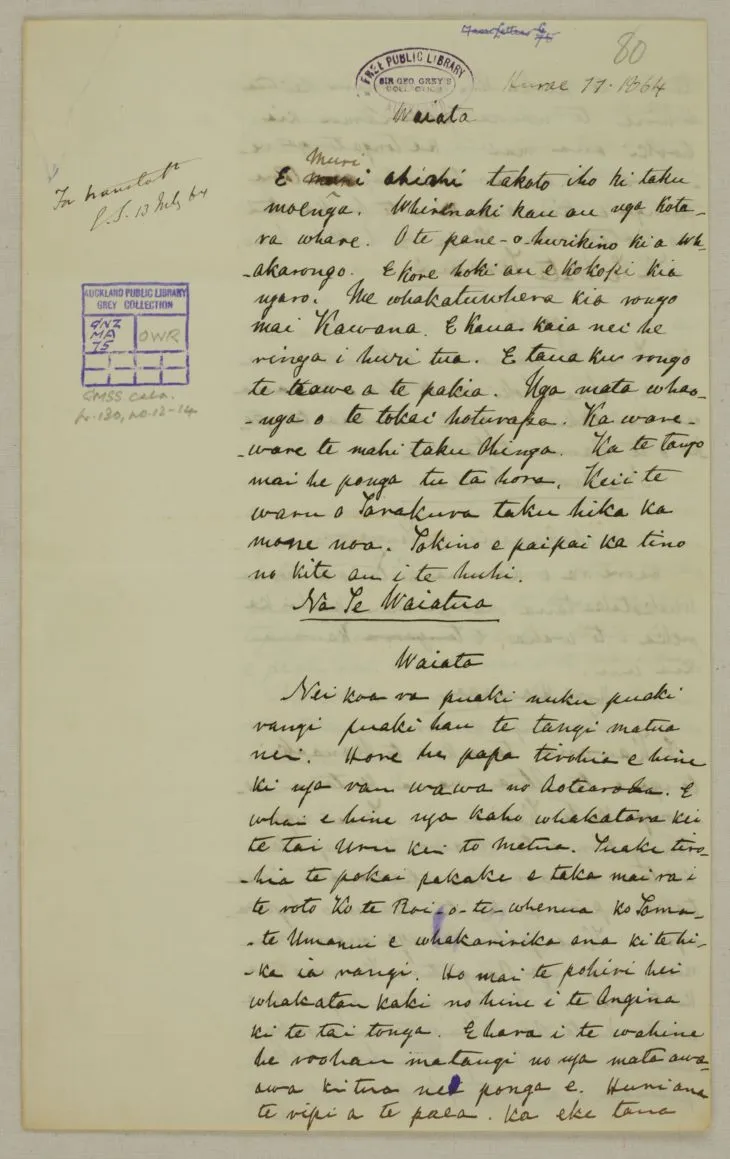 80
FREE PUBLIC LIBRARY
SIR GEO. GREY'S
COLLECTION
Hurae 17. 1864
Waiata
Muri
E ahiahi takoto iho ki taku
moenga. Whirinaki kau au nga kota-
ra whare. O te pane-o-hurikino kia wh-
-akarongo. E kore hoki au e kokopi kia
ngaro. Me whakatuwhera kia rongo
mai Kawana. E kaua kaia nei he
ringa i huri tua. E taua ku rongo
te tawe a te pakia. Nga mata whao-
-nga o te tokai hoturapa. Ka ware-
-ware te mahi taku Ohinga. Ka te tango
mai he ponga tu ta hora. Kei i te
waru o Tarakura taku hika ka
mone noa. Tokino e paipai ka tino
no kite au i te huhi.
Na Te Waiatua
For translatn
G.S. 13 July 64
AUCKLAND PUBLIC LIBRARY
GREY COLLECTION
GNZ
MA
75
OWR
GMSS cala.
p. 130, no. 12-14
Waiata
Nei koa ra puaki nuku puaki
rangi puaki hau te tangi matua
nei. Hore he papa tirohia e hine
ki nga rau wawa no Aotearoa. E
whai e hine nga kaho whakatara kei
te tai Uru kei to Matua. Puake tiro-
-hia te pokai pakake e taka mai ra i
te roto Ko te Roi-o-te-whenua ko Tama-
-te Umanui e whakaririka ana ki te hi-
-ka ia rangi. Ho mai te pohiri hei
whakatau kaki no hine i te Angina
ki te tai tonga. Ehara i te wahine
he roohau matangi no nga mata awa-
awa ki tua nei ponga e. Huri ana
te ripi a te paea. Ka eke taua